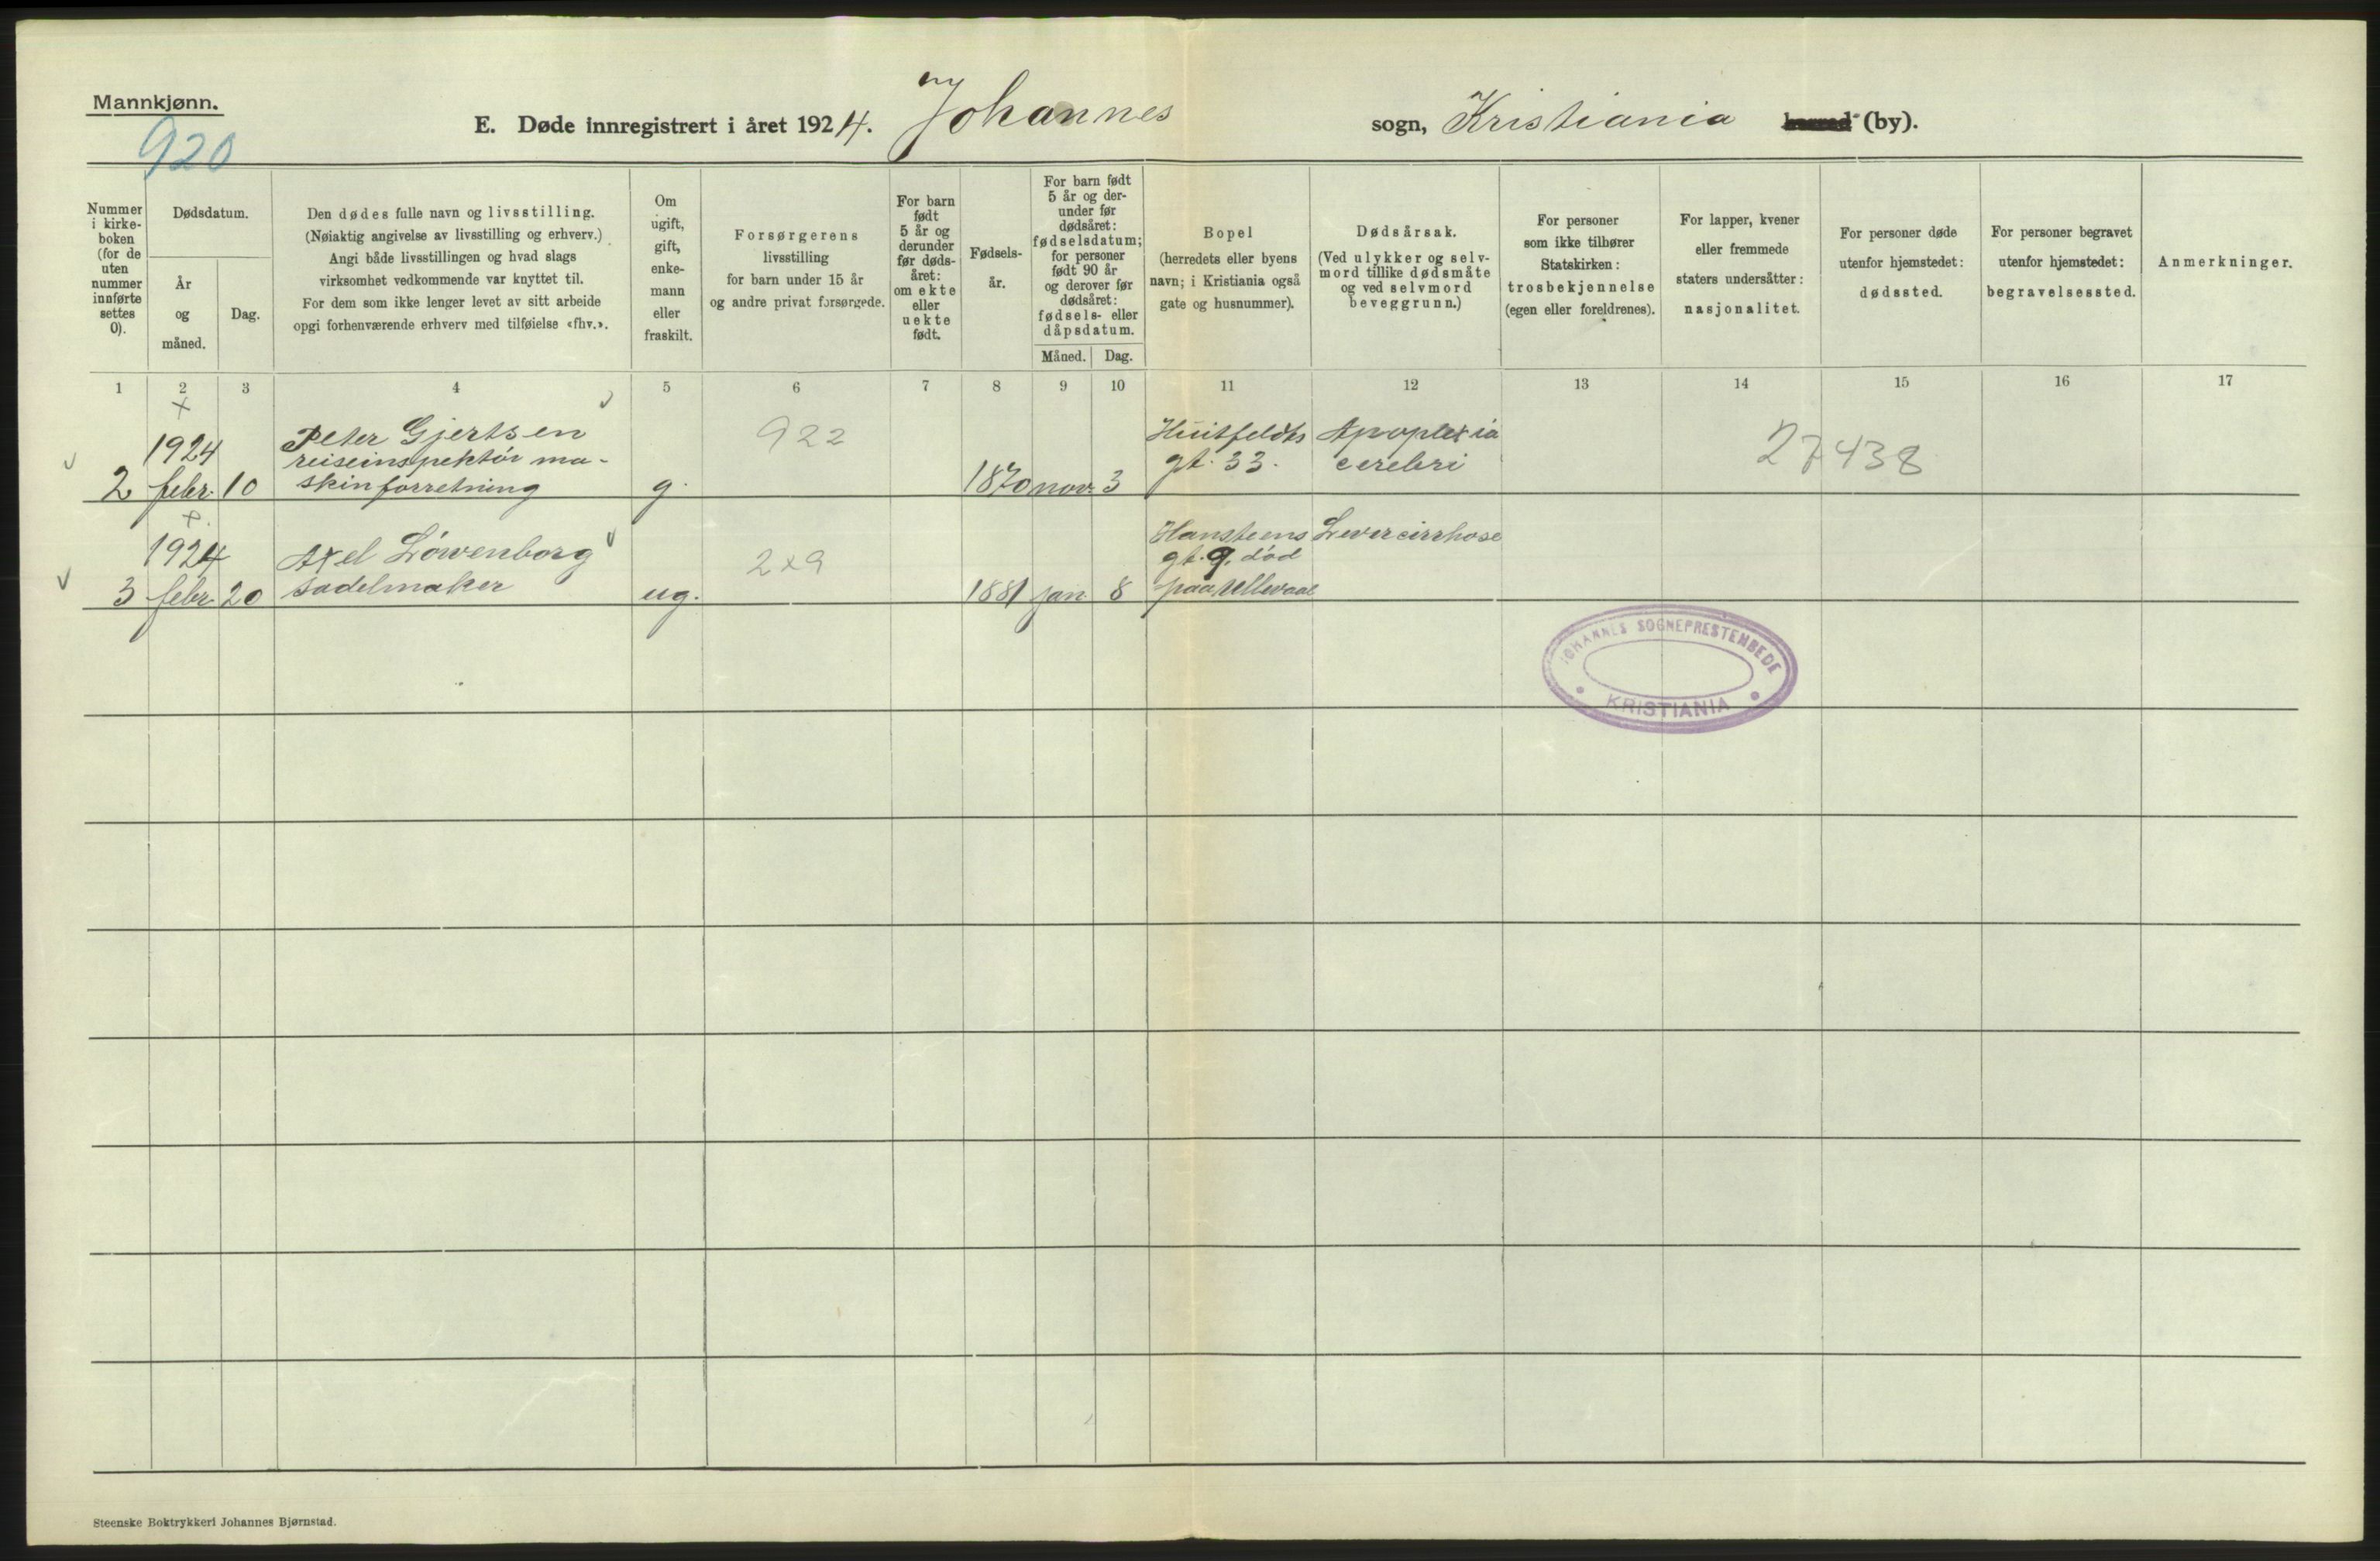 Mannkjønn.
920
E. Døde innregistrert i året 1924. Johannes sogn, Kristiania herred (by).
Nummer i kirke-boken (for de uten nummer innførte settes 0).
Dødsdatum.
År og måned.
Dag.
Den dødes fulle navn og livsstilling.
(Nøiaktig angivelse av livsstilling og erhverv.)
Angi både livsstillingen og hvad slags
virksomhet vedkommende var knyttet til.
For dem som ikke lenger levet av sitt arbeide
opgi forhenværende erhverv med tilføielse «fhv.».
Om
ugift,
gift,
enke-
mann
eller
fraskilt.
Forsørgerens
livsstilling
for barn under 15 år
og andre privat forsørgede.
For barn
født
5 år og
derunder
før døds-
året:
om ekte
eller
uekte
født.
Fødsels-
år.
For barn født
5 år og der-
under før
dødsåret:
fødselsdatum;
for personer
født 90 år
og derover før
dødsåret:
fødsels- eller
dåpsdatum.
Måned. Dag.
Bopel
(herredets eller byens
navn; i Kristiania også
gate og husnummer).
Dødsårsak.
(Ved ulykker og selv-
mord tillike dødsmåte
og ved selvmord
beveggrunn.)
For personer
som ikke tilhører
Statskirken:
trosbekjennelse
(egen eller foreldrenes).
For lapper, kvener
eller fremmede
staters undersåtter:
nasjonalitet.
For personer døde
utenfor hjemstedet:
dødssted.
For personer begravet
utenfor hjemstedet:
begravelsessted.
Anmerkninger.
1 2 3 4 5 6 7 8 9 10 11 12 13 14 15 16 17
2
1924
febr. 10
Peter Gjertsen
reiseinspektör ma-
skinforretning
g.
922
1870 nov. 3
Huitfeldts
gt. 33.
Apoplexia
cerebri
27438
3
1924
febr. 20
Axel Löwenborg
sadelmaker
ug.
2x9
1881 jan. 8
Hansteens
gt. 9. död
paa Ullevaal
Levercirrhose
JOHANNES SOGNEPRESTEMBEDE
KRISTIANIA
Steenske Boktrykkeri Johannes Bjørnstad.